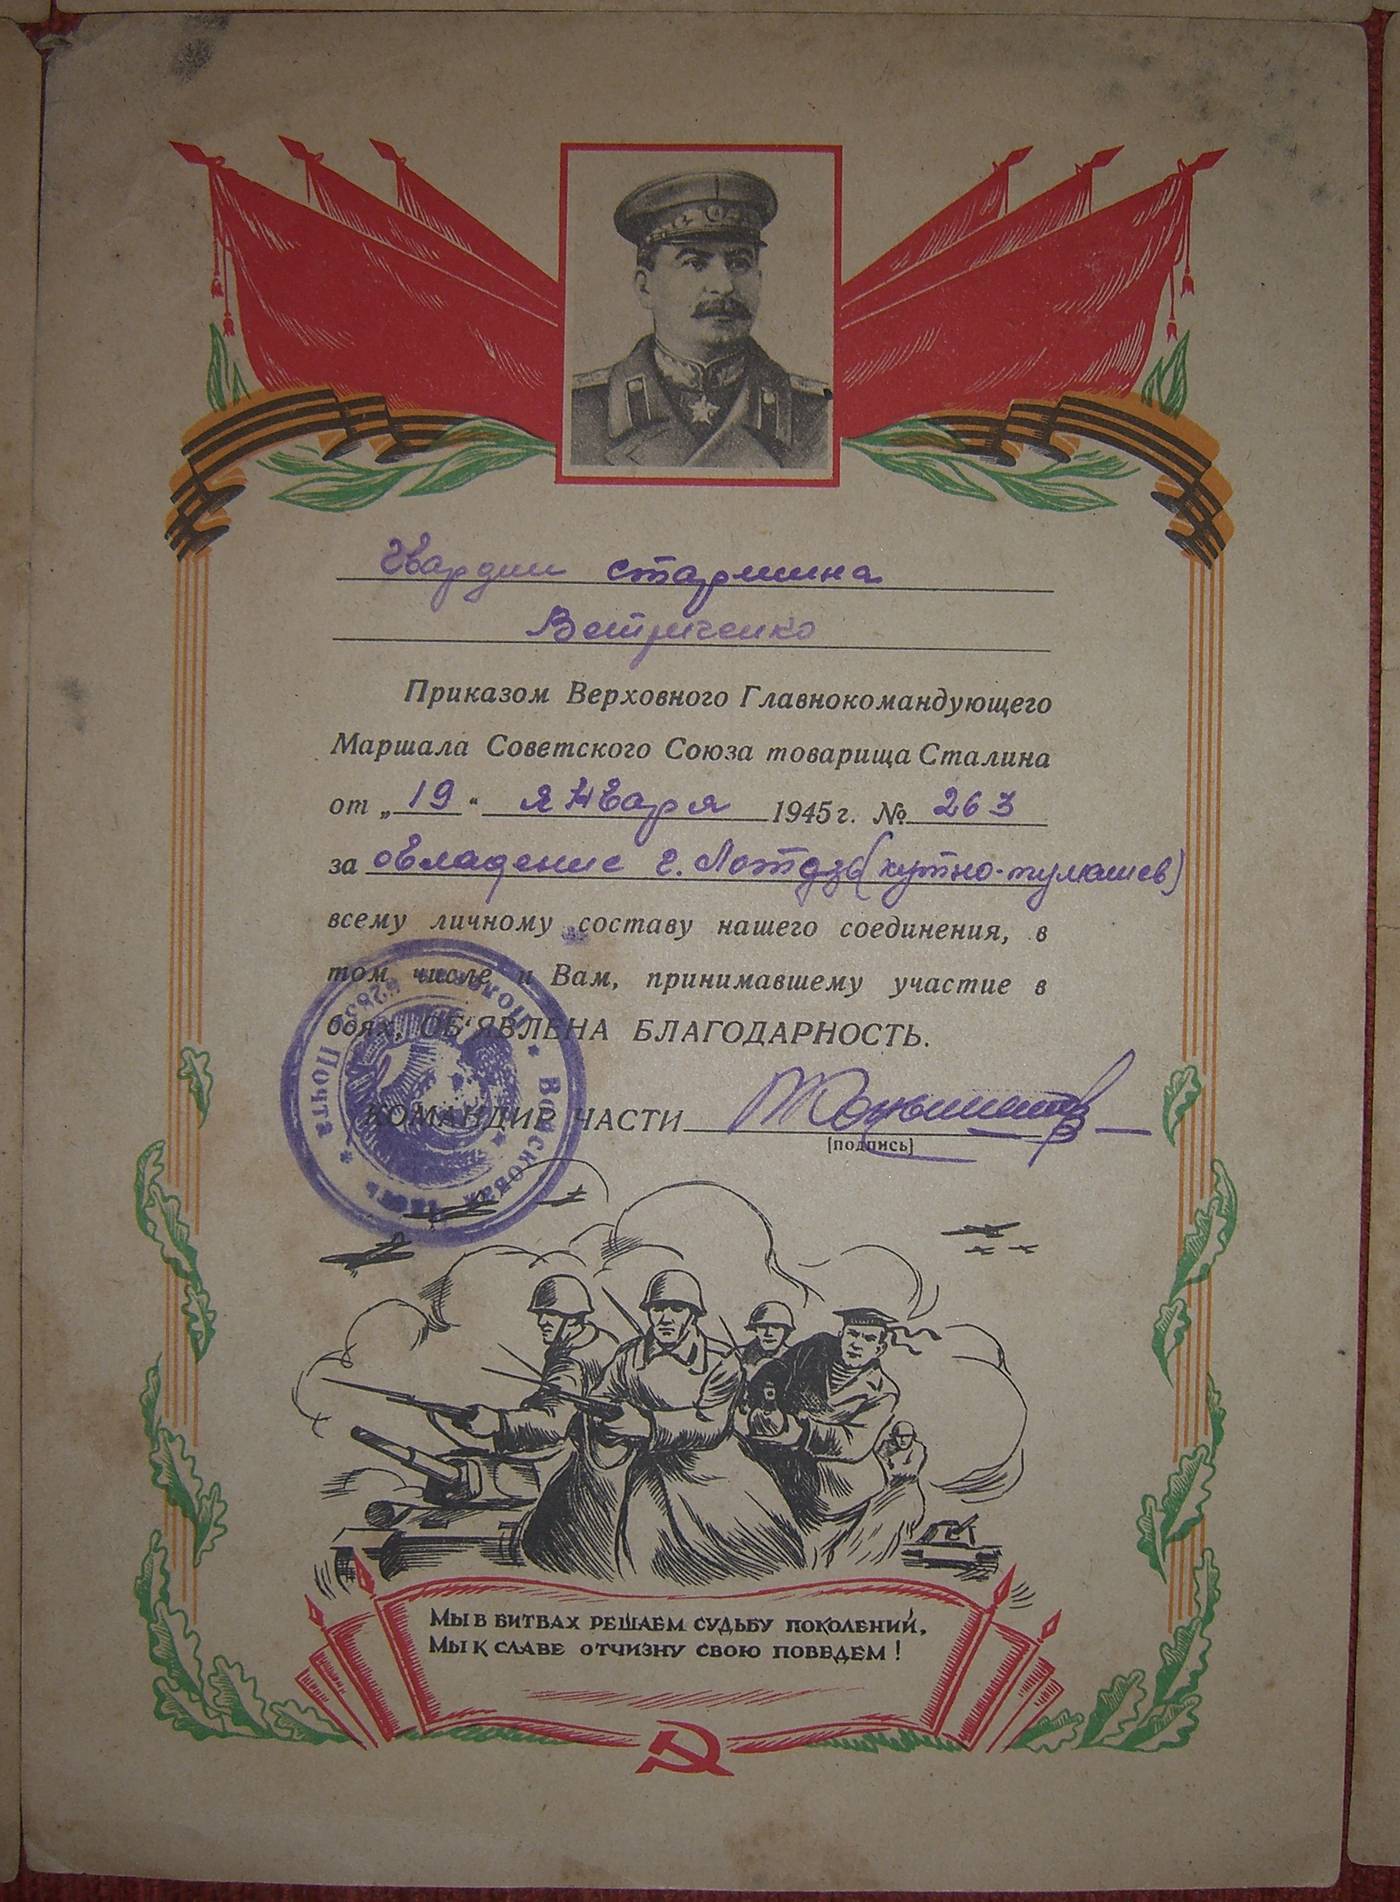 Гвардии старшина
Ветриченко
Приказом Верховного Главнокомандующего
Маршала Советского Союза товарища Сталина
от „19“ января 1945 г. № 263
за овладение г. Лотдзь (кутно-тумашев)
всему личному составу нашего соединения, в
том числе и Вам, принимавшему участие в
боях, ОБ‘ЯВЛЕНА БЛАГОДАРНОСТЬ.
КОМАНДИР ЧАСТИ
(подпись)
* Войсковая часть * Полевая Почта
МЫ В БИТВАХ РЕШАЕМ СУДЬБУ ПОКОЛЕНИЙ,
МЫ К СЛАВЕ ОТЧИЗНУ СВОЮ ПОВЕДЕМ!